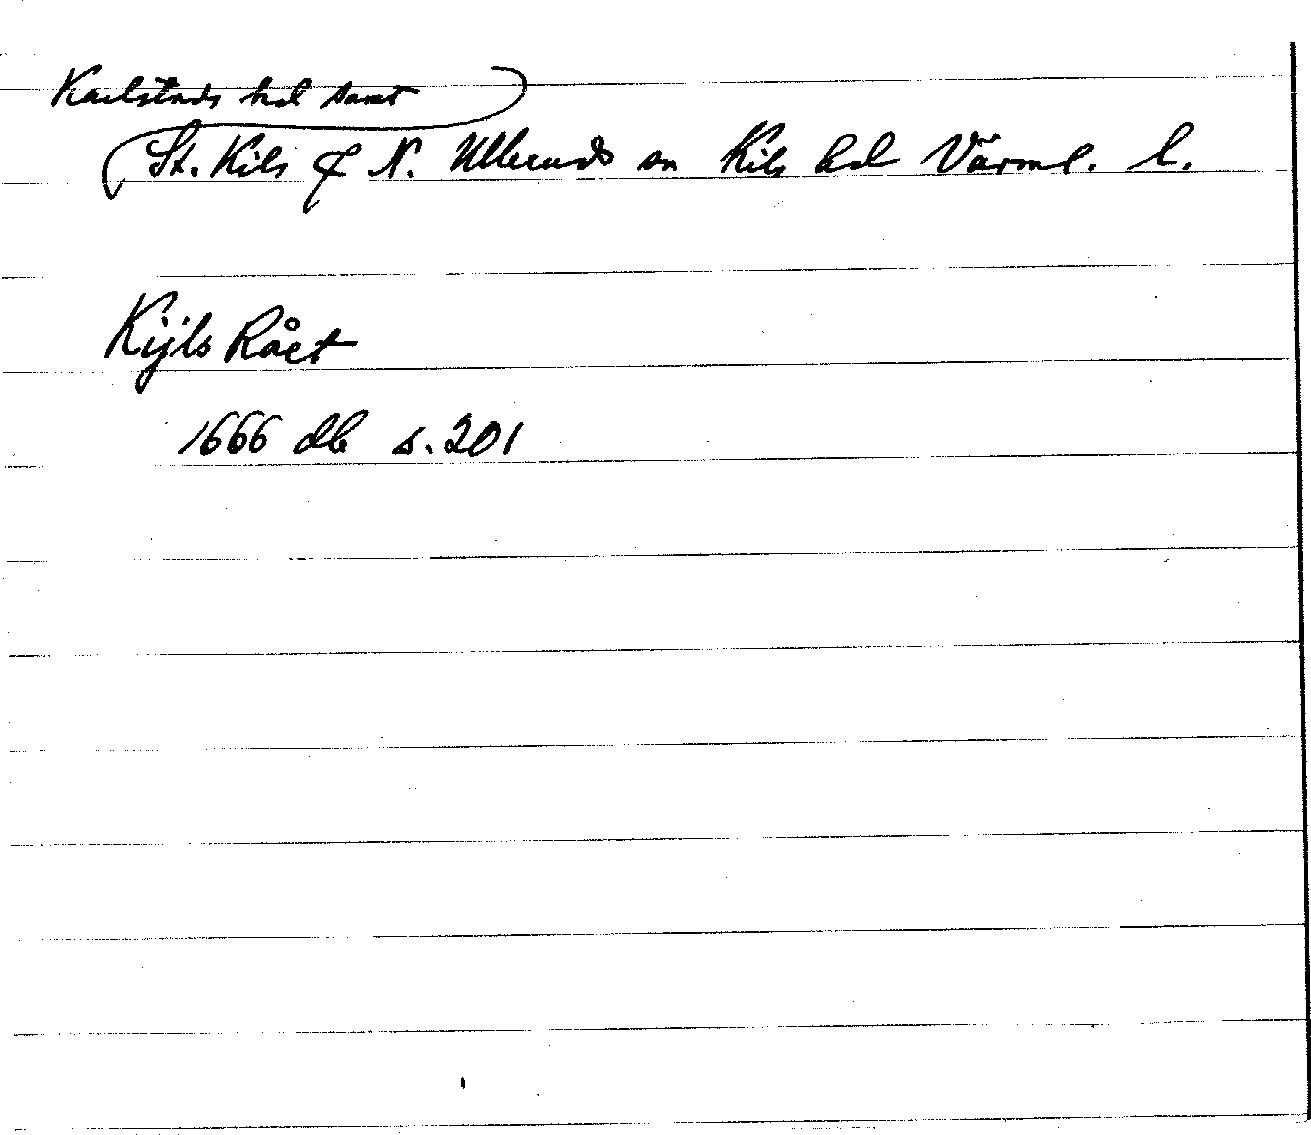 Karlstads hd samt
St. Kils & N. Ulleruds sn Kils hd Värml. l.
Kijls Rået
1666 db s. 201